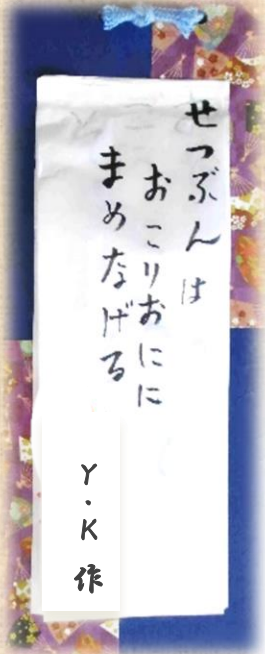 せつぶんは
おこりおにに
まめなげる
Y・K作